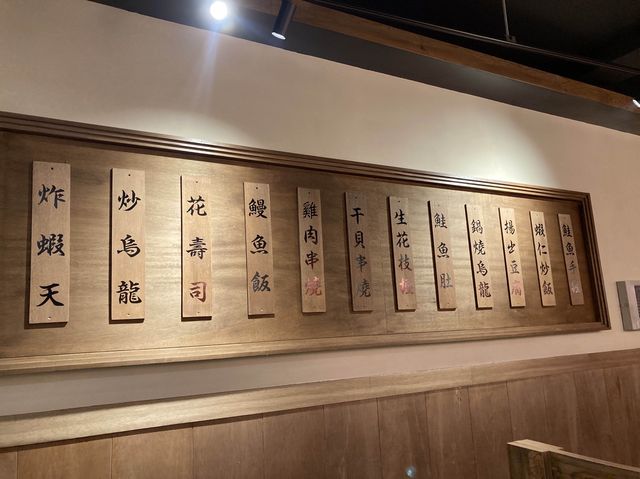 炸蝦天
炒烏龍
花壽司
鰻魚飯
雞肉串燒
干貝串燒
生花枝
鮭魚肚
鍋燒烏龍
揚出豆腐
蝦仁炒飯
鮭魚手